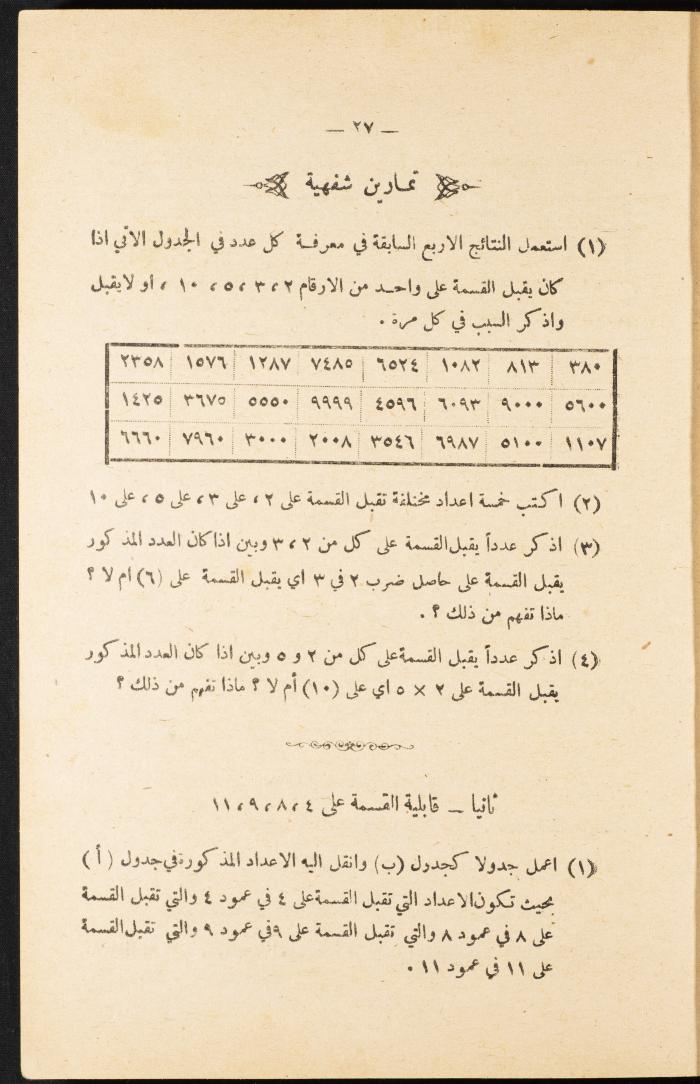 — ٢٧ —
تمارين شفهية
(١) استعمل النتائج الاربع السابقة في معرفة كل عدد في الجدول الآتي اذا
كان يقبل القسمة على واحد من الارقام ٢ ، ٣ ، ٥ ، ١٠ ، أو لايقبل
واذكر السبب في كل مرة .
٣٨٠ ٨١٣ ١٠٨٢ ٦٥٢٤ ٧٤٨٥ ١٢٨٧ ١٥٧٦ ٢٣٥٨
٥٦٠٠ ٩٠٠٠ ٦٠٩٣ ٤٥٩٦ ٩٩٩٩ ٥٥٥٠ ٣٦٧٥ ١٤٢٥
١١٠٧ ٥١٠٠ ٦٩٨٧ ٣٥٤٦ ٢٠٠٨ ٣٠٠٠ ٧٩٦٠ ٦٦٦٠
(٢) اكتب خمسة اعداد مختلفة تقبل القسمة على ٢ ، على ٣ ، على ٥ ، على ١٠
(٣) اذكر عدداً يقبل القسمة على كل من ٢ ، ٣ وبين اذا كان العدد المذكور
يقبل القسمة على حاصل ضرب ٢ في ٣ اي يقبل القسمة على (٦) ام لا ؟
ماذا تفهم من ذلك ؟ .
(٤) اذكر عدداً يقبل القسمة على كل من ٢ و ٥ وبين اذا كان العدد المذكور
يقبل القسمة على ٢ × ٥ اي على (١٠) أم لا ؟ ماذا تفهم من ذلك ؟
ثانيا — قابلية القسمة على ٤ ، ٨ ، ٩ ، ١١
(١) اعمل جدولا كجدول (ب) وانقل اليه الاعداد المذكورة في جدول (أ)
بحيث تكون الاعداد التي تقبل القسمة على ٤ في عمود ٤ والتي تقبل القسمة
على ٨ في عمود ٨ والتي تقبل القسمة على ٩ في عمود ٩ والتي تقبل القسمة
على ١١ في عمود ١١ .